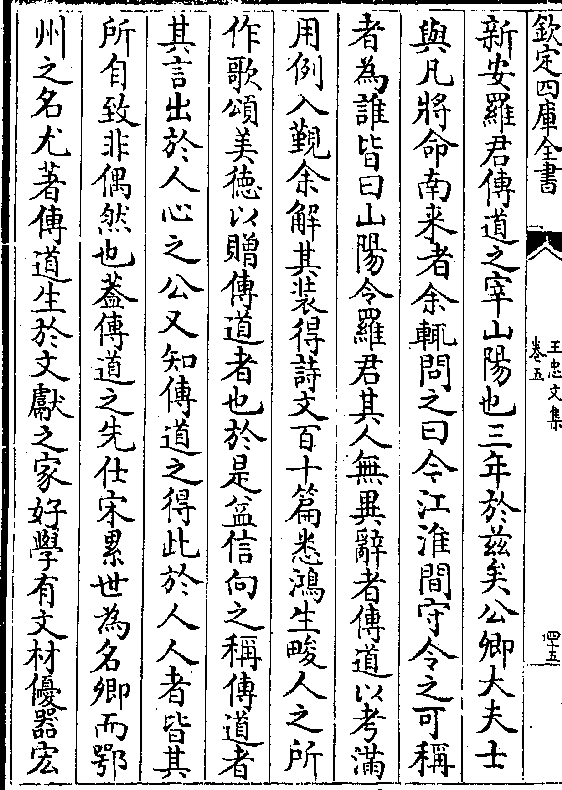 欽定四庫全書
王忠文集
卷五
四十五
新安羅君傳道之宰山陽也三年於兹矣公卿大夫士
與凡將命南来者余輒問之曰今江淮間守令之可稱
者為誰皆曰山陽令羅君其人無異辭者傳道以考滿
用例入覲余解其装得詩文百十篇悉鴻生畯人之所
作歌頌美徳以贈傳道者也於是益信向之稱傳道者
其言出於人心之公又知傳道之得此於人人者皆其
所自致非偶然也蓋傳道之先仕宋累世為名卿而鄂
州之名尤著傳道生於文獻之家好學有文材優器宏